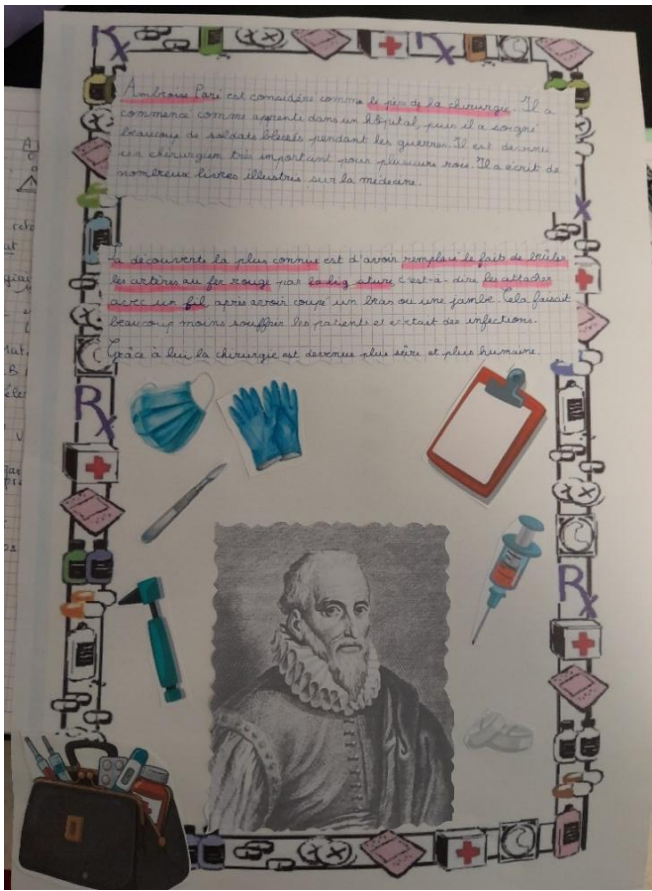 Ambroise Paré est considéré comme le père de la chirurgie. Il a
commencé comme apprenti dans un hôpital, puis il a soigné
beaucoup de soldats blessés pendant les guerres. Il est devenu
un chirurgien très important pour plusieurs rois. Il a écrit de
nombreux livres illustrés sur la médecine.
a découverte la plus connue est d'avoir remplacé le fait de brûler
les artères au fer rouge par la lig ature c'est-à-dire les attacher
avec un fil après avoir coupé un bras ou une jambe. Cela faisait
beaucoup moins souffrir les patients et évitait des infections.
Grâce à lui la chirurgie est devenue plus sûre et plus humaine.
Rx
Rx
Rx
Rx